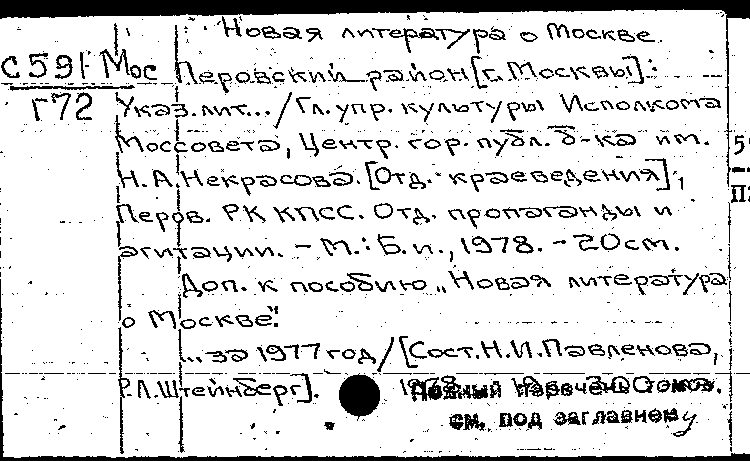 Новая литература о Москве.
С591 Мос Перовский район [г. Москвы]:
Г72 Указ. лит... / Гл. упр. культуры Исполкома
Моссовета, Центр. гор. публ. б-ка им.
Н.А. Некрасова. [Отд. краеведения];
Перов. РК КПСС. Отд. пропаганды и
агитации. - М.: Б.и., 1978. - 20 см.
Доп. к пособию „Новая литература
о Москве".
... за 1977 год / [Сост. Н.И. Павленова,
Р.Л. Штейнберг]. 1978.
Полный перечень томов
см. под заглавием